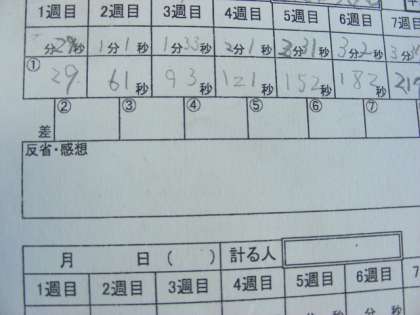 1週目 2週目 3週目 4週目 5週目 6週目 7週目
分29秒 1分1秒 1分33秒 2分1秒 2分31秒 3分2秒 3分
① 29 61秒 93秒 121秒 152秒 182秒 21
差 ② ③ ④ ⑤ ⑥ ⑦
反省・感想
月 日( ) 計る人
1週目 2週目 3週目 4週目 5週目 6週目 7
分 秒 分 秒